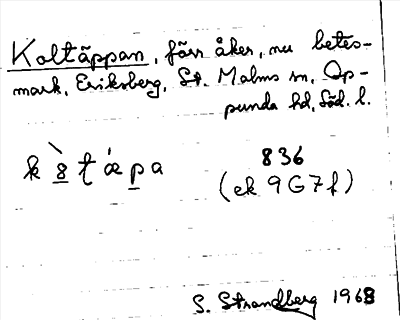 Koltäppan, förr åker, nu betes-
mark, Eriksberg, St. Malms sn, Op-
punda hd, Söd. l.
k ò̲ t ǽ p̲ a
836
(ek 9G7f)
S. Strandberg 1968